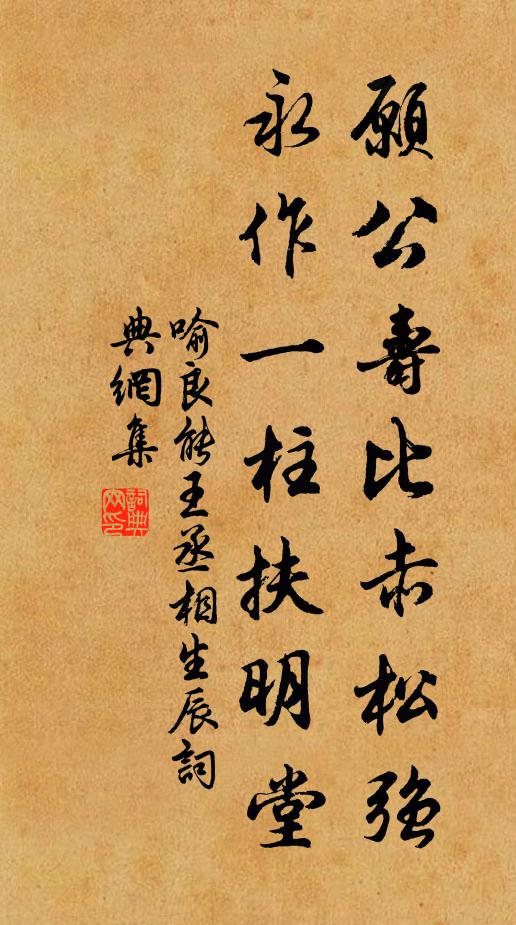 願公壽比赤松强
永作一柱扶明堂
喻良能王丞相生辰詞
典網集
詞典網印